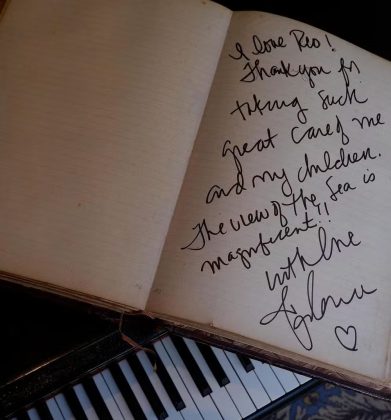 I love Rio!
Thank you for
taking such
great care of me
and my children.
The view of the sea is
magnificent!!
with love